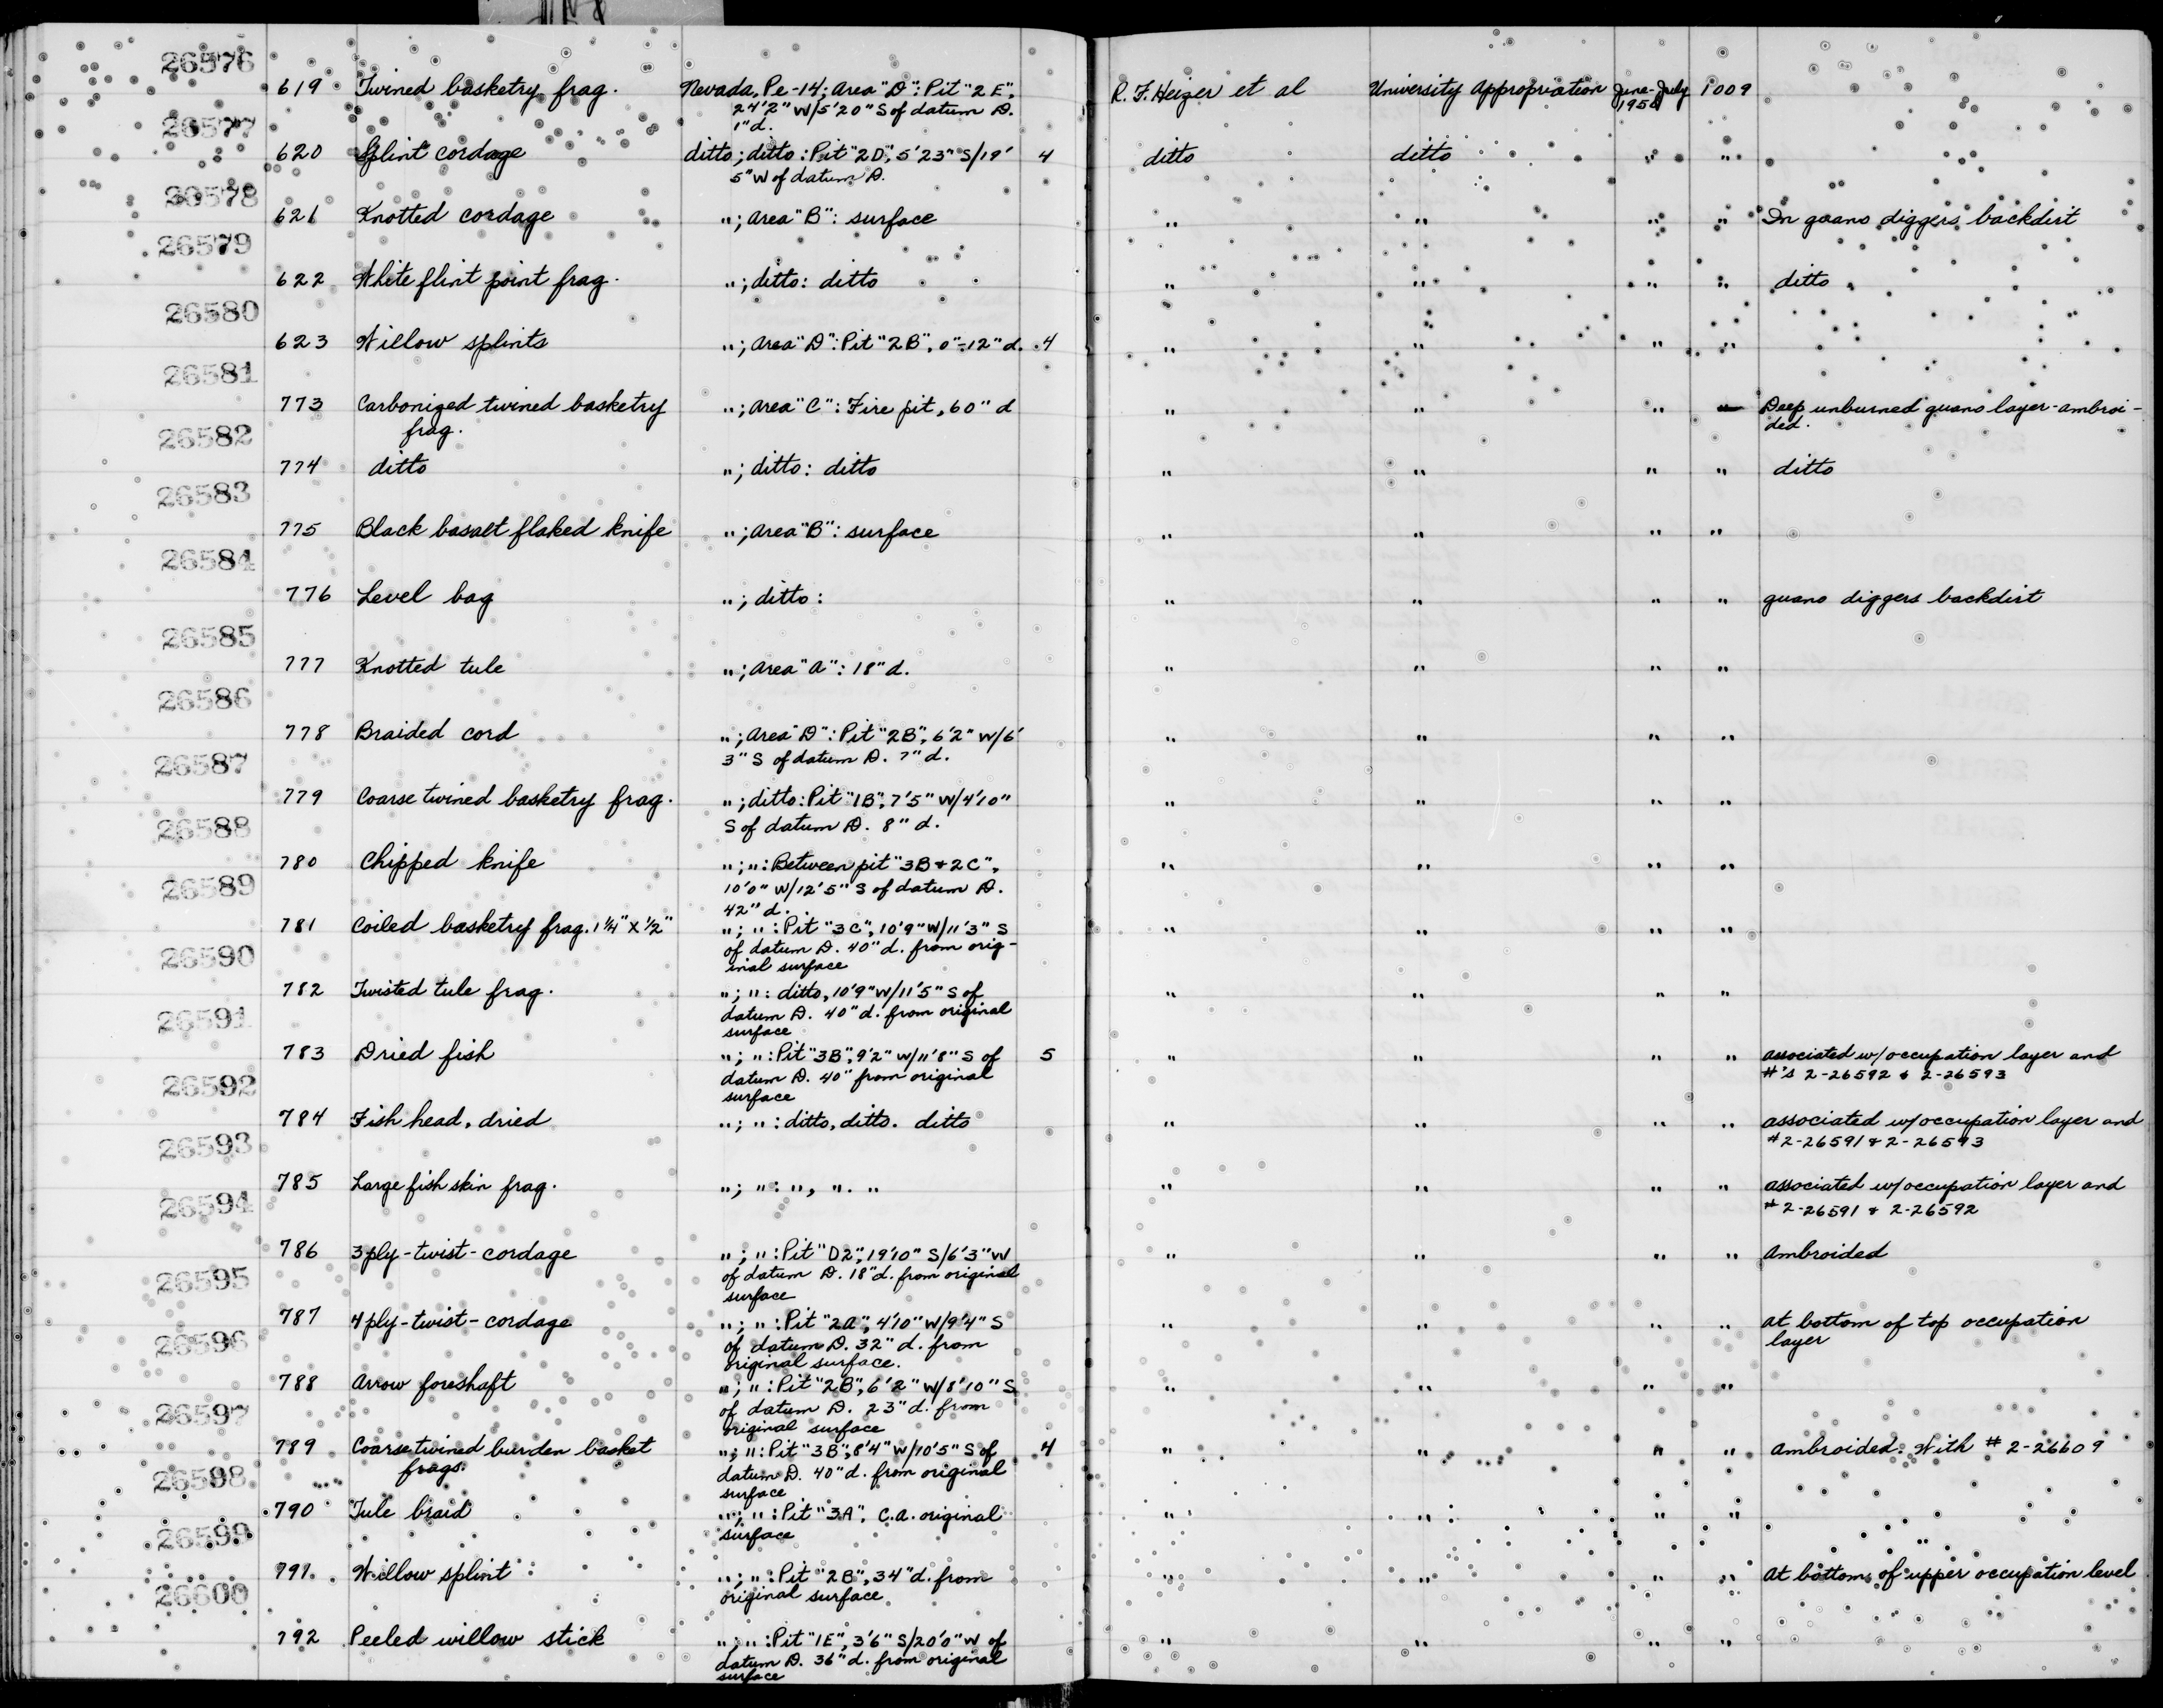 26576
619 Twined basketry frag. Nevada, Pe-14; Area "D": Pit "2E", R. F. Heizer et al University Appropriation June-July 1009
24'2" W/5'20" S of datum D. 1950
1" d.
26577
620 Splint cordage ditto; ditto: Pit "2D", 5'23" S/19' 4 ditto ditto " "
5" W of datum D.
26578
621 Knotted cordage "; Area "B": surface " " " " In guano diggers backdirt
26579
622 White flint point frag. "; ditto: ditto " " " " ditto
26580
623 Willow splints "; Area "D": Pit "2B", 0"-12" d. 4 " " " "
26581
773 Carbonized twined basketry "; Area "C": Fire pit, 60" d " " " " Deep unburned guano layer-ambroi-
frag. ded.
26582
774 ditto "; ditto: ditto " " " " ditto
26583
775 Black basalt flaked knife "; Area "B": surface " " " "
26584
776 Level bag "; ditto: " " " " guano diggers backdirt
26585
777 Knotted tule "; Area "A": 18" d. " " " "
26586
778 Braided cord "; Area "D": Pit "2B", 6'2" W/6' " " " "
3" S of datum D. 7" d.
26587
779 Coarse twined basketry frag. "; ditto: Pit "1B", 7'5" W/4'10" " " " "
S of datum D. 8" d.
26588
780 Chipped knife "; ": Between pit "3B & 2C", " " " "
10'0" W/12'5" S of datum D.
42" d.
26589
781 Coiled basketry frag. 1¼" X ½" "; ": Pit "3C", 10'9" W/11'3" S " " " "
of datum D. 40" d. from orig-
inal surface
26590
782 Twisted tule frag. "; ": ditto, 10'9" W/11'5" S of " " " "
datum D. 40" d. from original
surface
26591
783 Dried fish "; ": Pit "3B", 9'2" W/11'8" S of 5 " " " " associated w/occupation layer and
datum D. 40" from original #'s 2-26592 & 2-26593
surface
26592
784 Fish head, dried "; ": ditto, ditto. ditto " " " " associated w/occupation layer and
#2-26591 & 2-26593
26593
785 Large fish skin frag. "; ": ", ". " " " " " associated w/occupation layer and
#2-26591 & 2-26592
26594
786 3ply-twist-cordage "; ": Pit "D2", 19'10" S/6'3" W " " " " Ambroided
of datum D. 18" d. from original
surface
26595
787 4ply-twist-cordage "; ": Pit "2A", 4'10" W/9'4" S " " " " at bottom of top occupation
of datum D. 32" d. from layer
original surface.
26596
788 Arrow foreshaft "; ": Pit "2B", 6'2" W/8'10" S " " " "
of datum D. 23" d. from
original surface
26597
789 Coarse twined burden basket "; ": Pit "3B", 8'4" W/10'5" S of 4 " " " " Ambroided. With # 2-26609
frags. datum D. 40" d. from original
surface
26598
790 Tule braid "; ": Pit "3A", C.A. original " " " "
surface
26599
791 Willow splint "; ": Pit "2B", 34" d. from " " " " at bottom of upper occupation level
original surface
26600
792 Peeled willow stick "; ": Pit "1E", 3'6" S/20'0" W of " " " "
datum D. 36" d. from original
surface